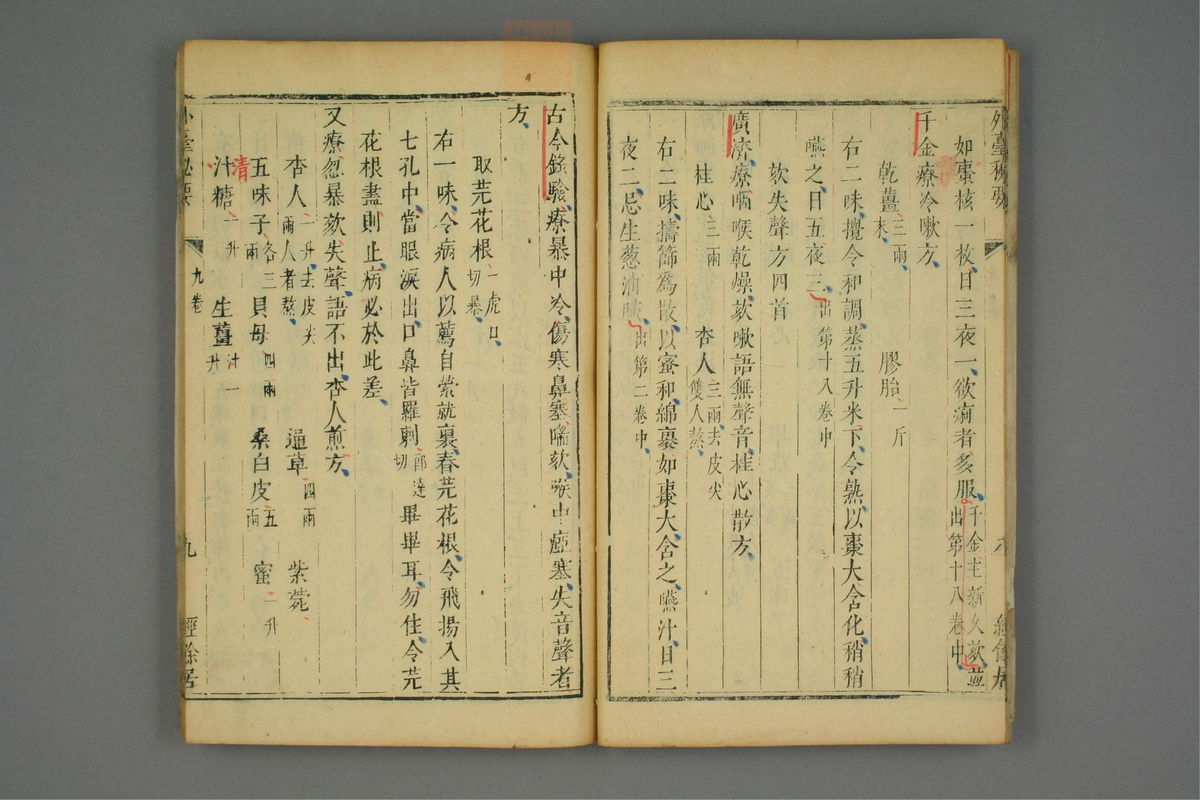 外臺秘要
六
經餘居
如棗核一枚日三夜一欲瘥者多服千金主新久欬並出第十八卷中
千金療冷嗽方
乾薑三兩末 膠飴一斤
右二味攪令和調蒸五升米下令熟以棗大含化稍稍
嚥之日五夜三出第十八卷中
欬失聲方四首
廣濟療咽喉乾燥欬嗽語無聲音桂心散方
桂心三兩 杏人三兩去皮尖雙人熬
右二味擣篩爲散以蜜和綿裹如棗大含之嚥汁日三
夜二忌生葱油膩出第二卷中
古今錄驗療暴中冷傷寒鼻塞喘欬喉中瘂塞失音聲者
方
取芫花根一虎口切暴
右一味令病人以薦自縈就裏舂芫花根令飛揚入其
七孔中當眼淚出口鼻皆羅剌郎達切畢畢耳勿住令芫
花根盡則止病必於此差
又療忽暴欬失聲語不出杏人煎方
杏人一升去皮尖兩人者熬 通草四兩 紫菀
五味子各三兩 貝母四兩 桑白皮五兩 蜜一升
清
汁糖一升 生薑汁一升
外臺秘要
九卷
九
經餘居